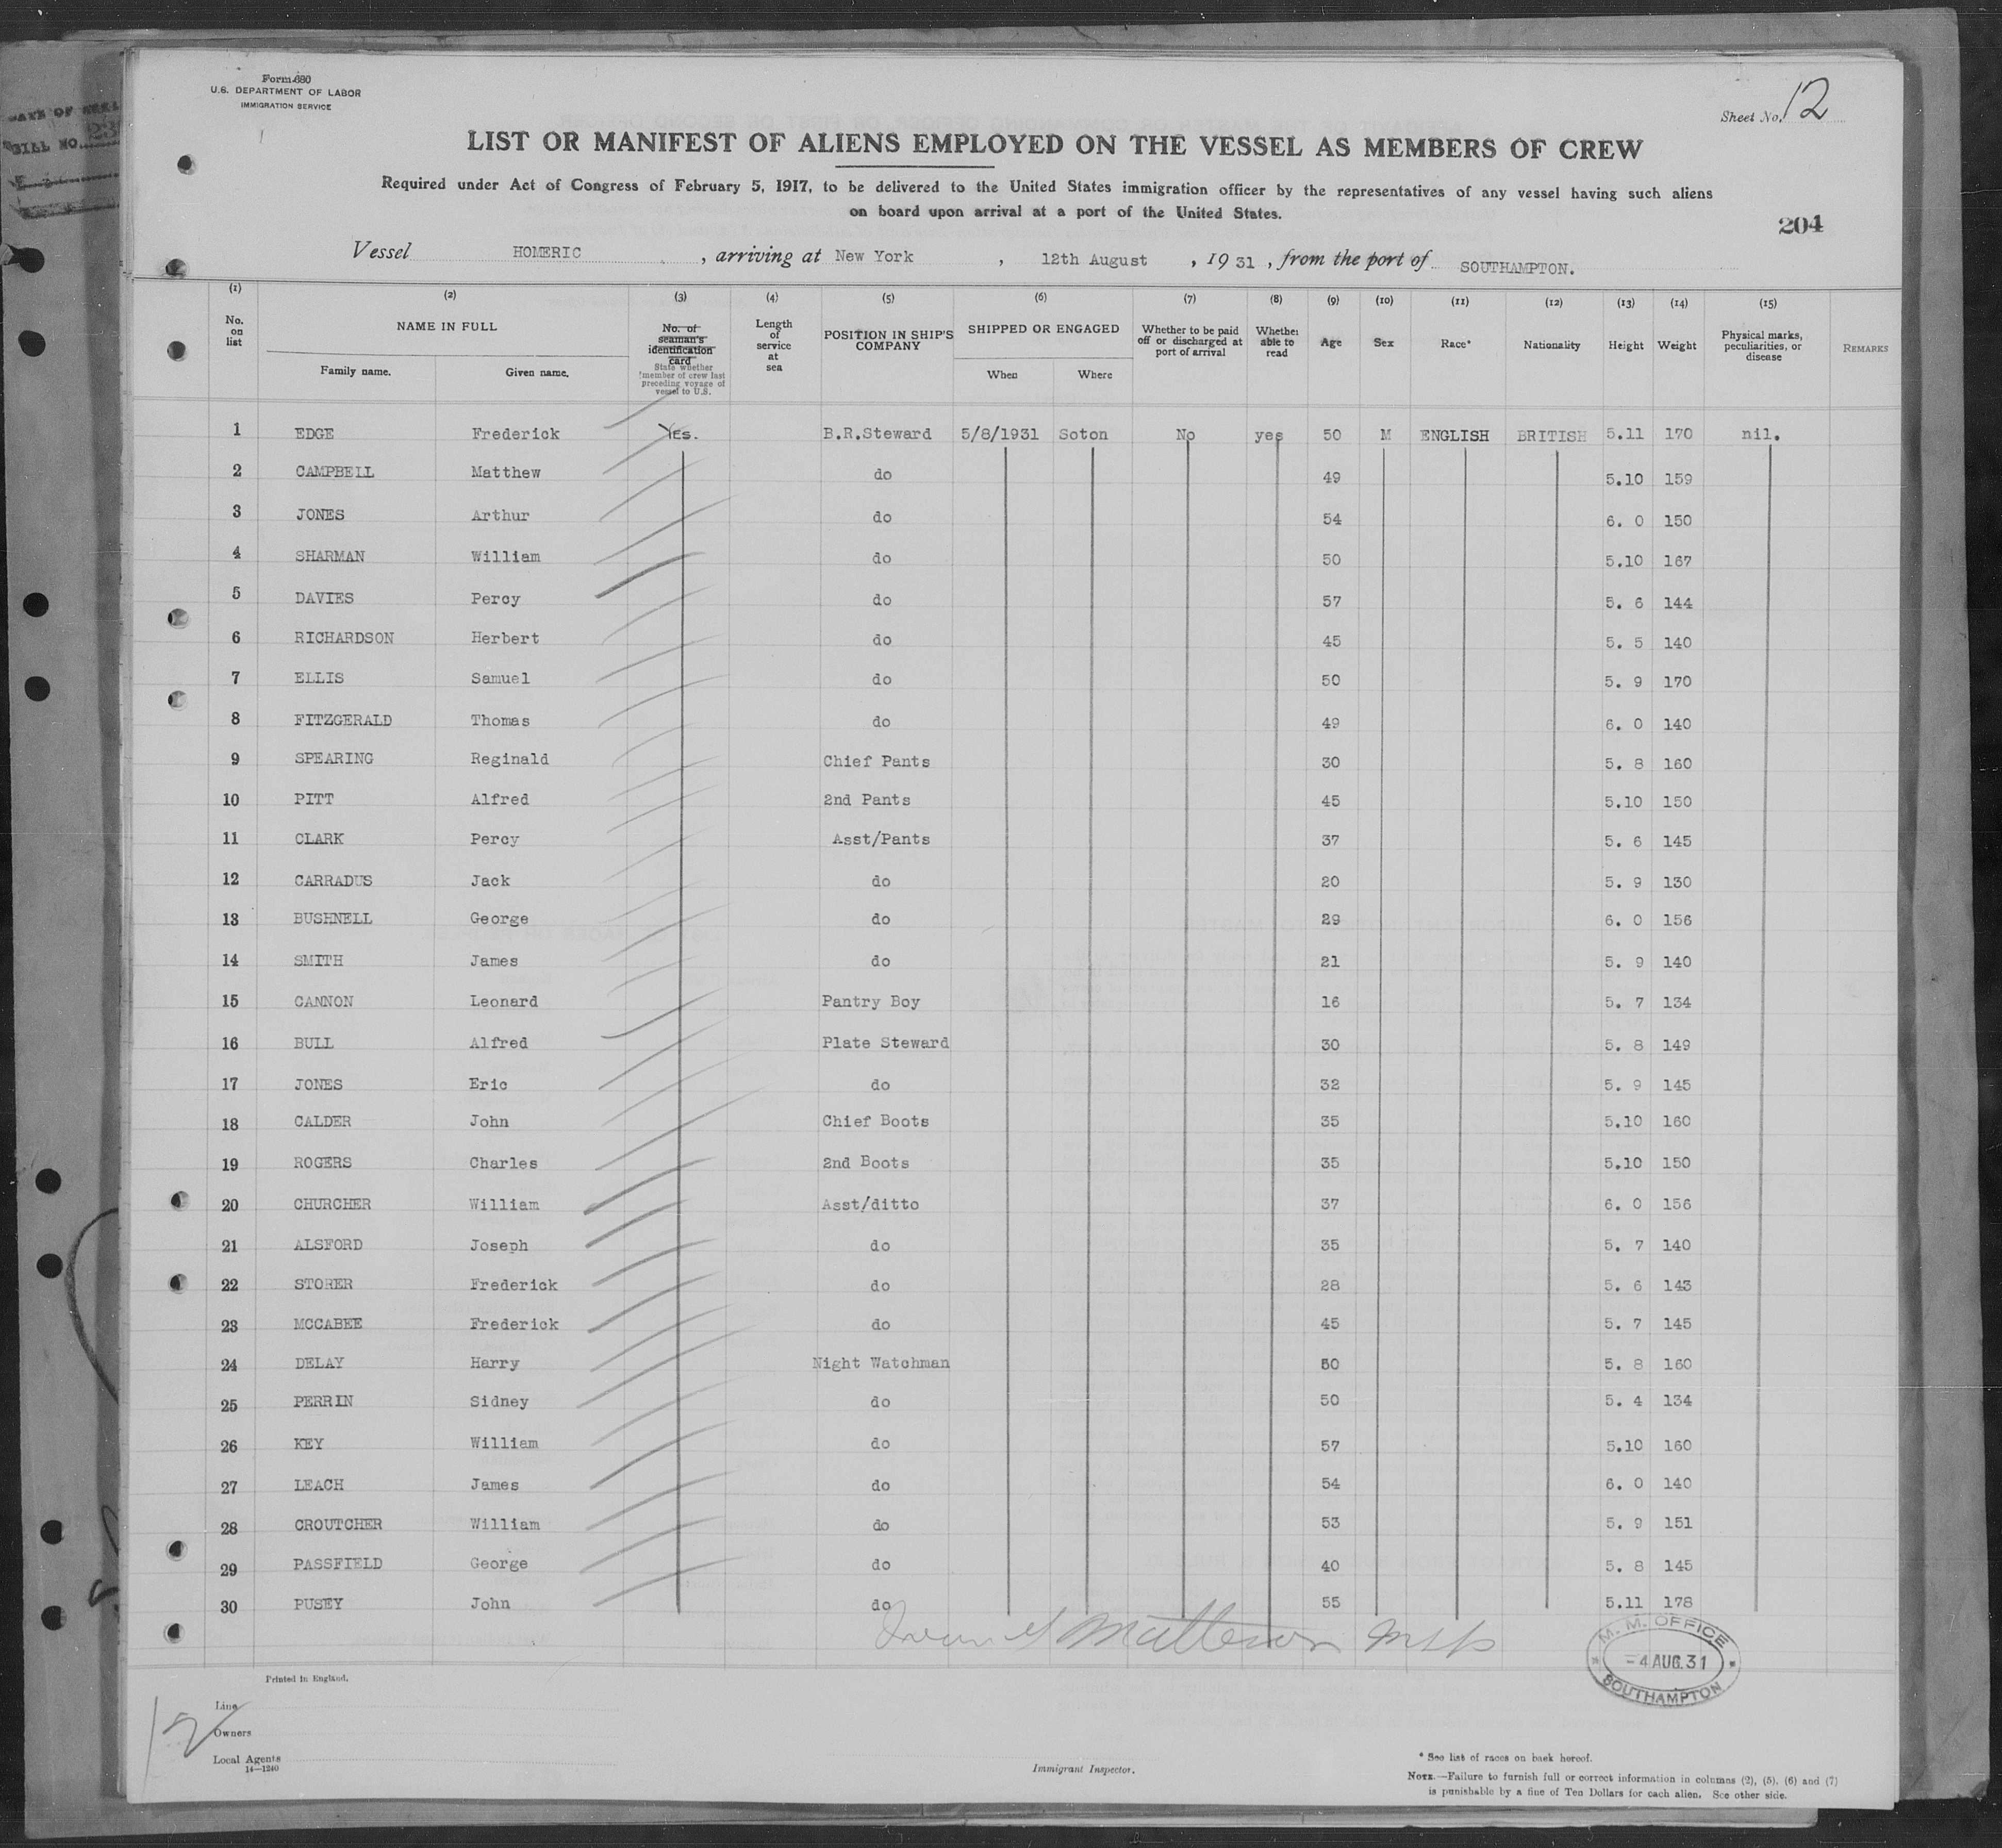 DATE OF
BILL NO. 23
Form 680
U.S. DEPARTMENT OF LABOR
IMMIGRATION SERVICE
Sheet No. 12
LIST OR MANIFEST OF ALIENS EMPLOYED ON THE VESSEL AS MEMBERS OF CREW
Required under Act of Congress of February 5, 1917, to be delivered to the United States immigration officer by the representatives of any vessel having such aliens
on board upon arrival at a port of the United States.
204
Vessel HOMERIC , arriving at New York , 12th August , 19 31 , from the port of SOUTHAMPTON.
(1) (2) (3) (4) (5) (6) (7) (8) (9) (10) (11) (12) (13) (14) (15)
No. on list NAME IN FULL Family name. Given name. No. of seaman's identification card State whether member of crew last preceding voyage of vessel to U.S. Length of service at sea POSITION IN SHIP'S COMPANY SHIPPED OR ENGAGED When Where Whether to be paid off or discharged at port of arrival Whether able to read Age Sex Race* Nationality Height Weight Physical marks, peculiarities, or disease REMARKS
1 EDGE Frederick Yes. B.R.Steward 5/8/1931 Soton No yes 50 M ENGLISH BRITISH 5.11 170 nil.
2 CAMPBELL Matthew do 49 5.10 159
3 JONES Arthur do 54 6. 0 150
4 SHARMAN William do 50 5.10 167
5 DAVIES Percy do 57 5. 6 144
6 RICHARDSON Herbert do 45 5. 5 140
7 ELLIS Samuel do 50 5. 9 170
8 FITZGERALD Thomas do 49 6. 0 140
9 SPEARING Reginald Chief Pants 30 5. 8 160
10 PITT Alfred 2nd Pants 45 5.10 150
11 CLARK Percy Asst/Pants 37 5. 6 145
12 CARRADUS Jack do 20 5. 9 130
13 BUSHNELL George do 29 6. 0 156
14 SMITH James do 21 5. 9 140
15 CANNON Leonard Pantry Boy 16 5. 7 134
16 BULL Alfred Plate Steward 30 5. 8 149
17 JONES Eric do 32 5. 9 145
18 CALDER John Chief Boots 35 5.10 160
19 ROGERS Charles 2nd Boots 35 5.10 150
20 CHURCHER William Asst/ditto 37 6. 0 156
21 ALSFORD Joseph do 35 5. 7 140
22 STORER Frederick do 28 5. 6 143
23 MCCABEE Frederick do 45 5. 7 145
24 DELAY Harry Night Watchman 50 5. 8 160
25 PERRIN Sidney do 50 5. 4 134
26 KEY William do 57 5.10 160
27 LEACH James do 54 6. 0 140
28 CROUTCHER William do 53 5. 9 151
29 PASSFIELD George do 40 5. 8 145
30 PUSEY John do 55 5.11 178
M. M. OFFICE
- 4 AUG. 31
SOUTHAMPTON
Printed in England.
12
Line
Owners
Local Agents
14—1240
Immigrant Inspector.
* See list of races on back hereof.
NOTE.—Failure to furnish full or correct information in columns (2), (5), (6) and (7)
is punishable by a fine of Ten Dollars for each alien. See other side.